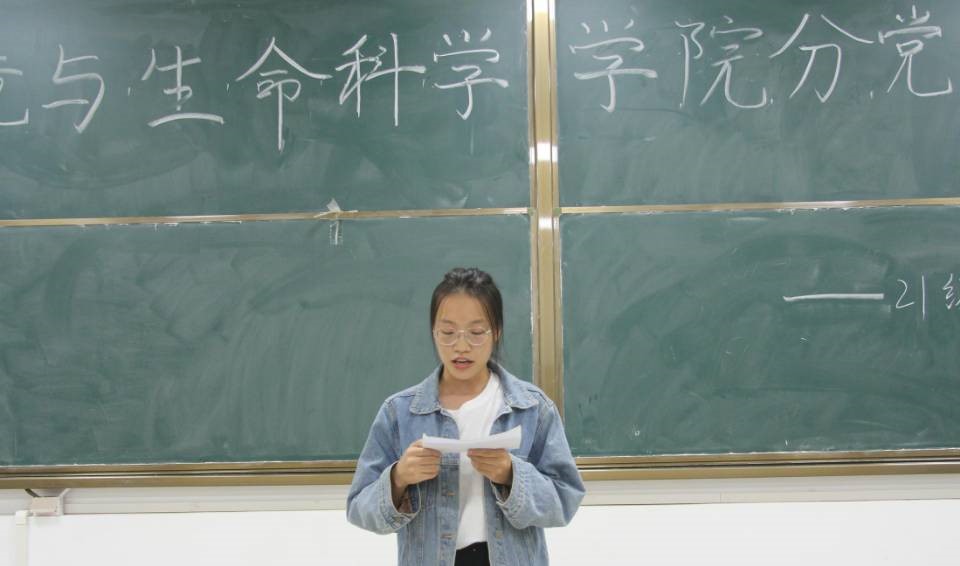 与生命科学学院分党
——21级